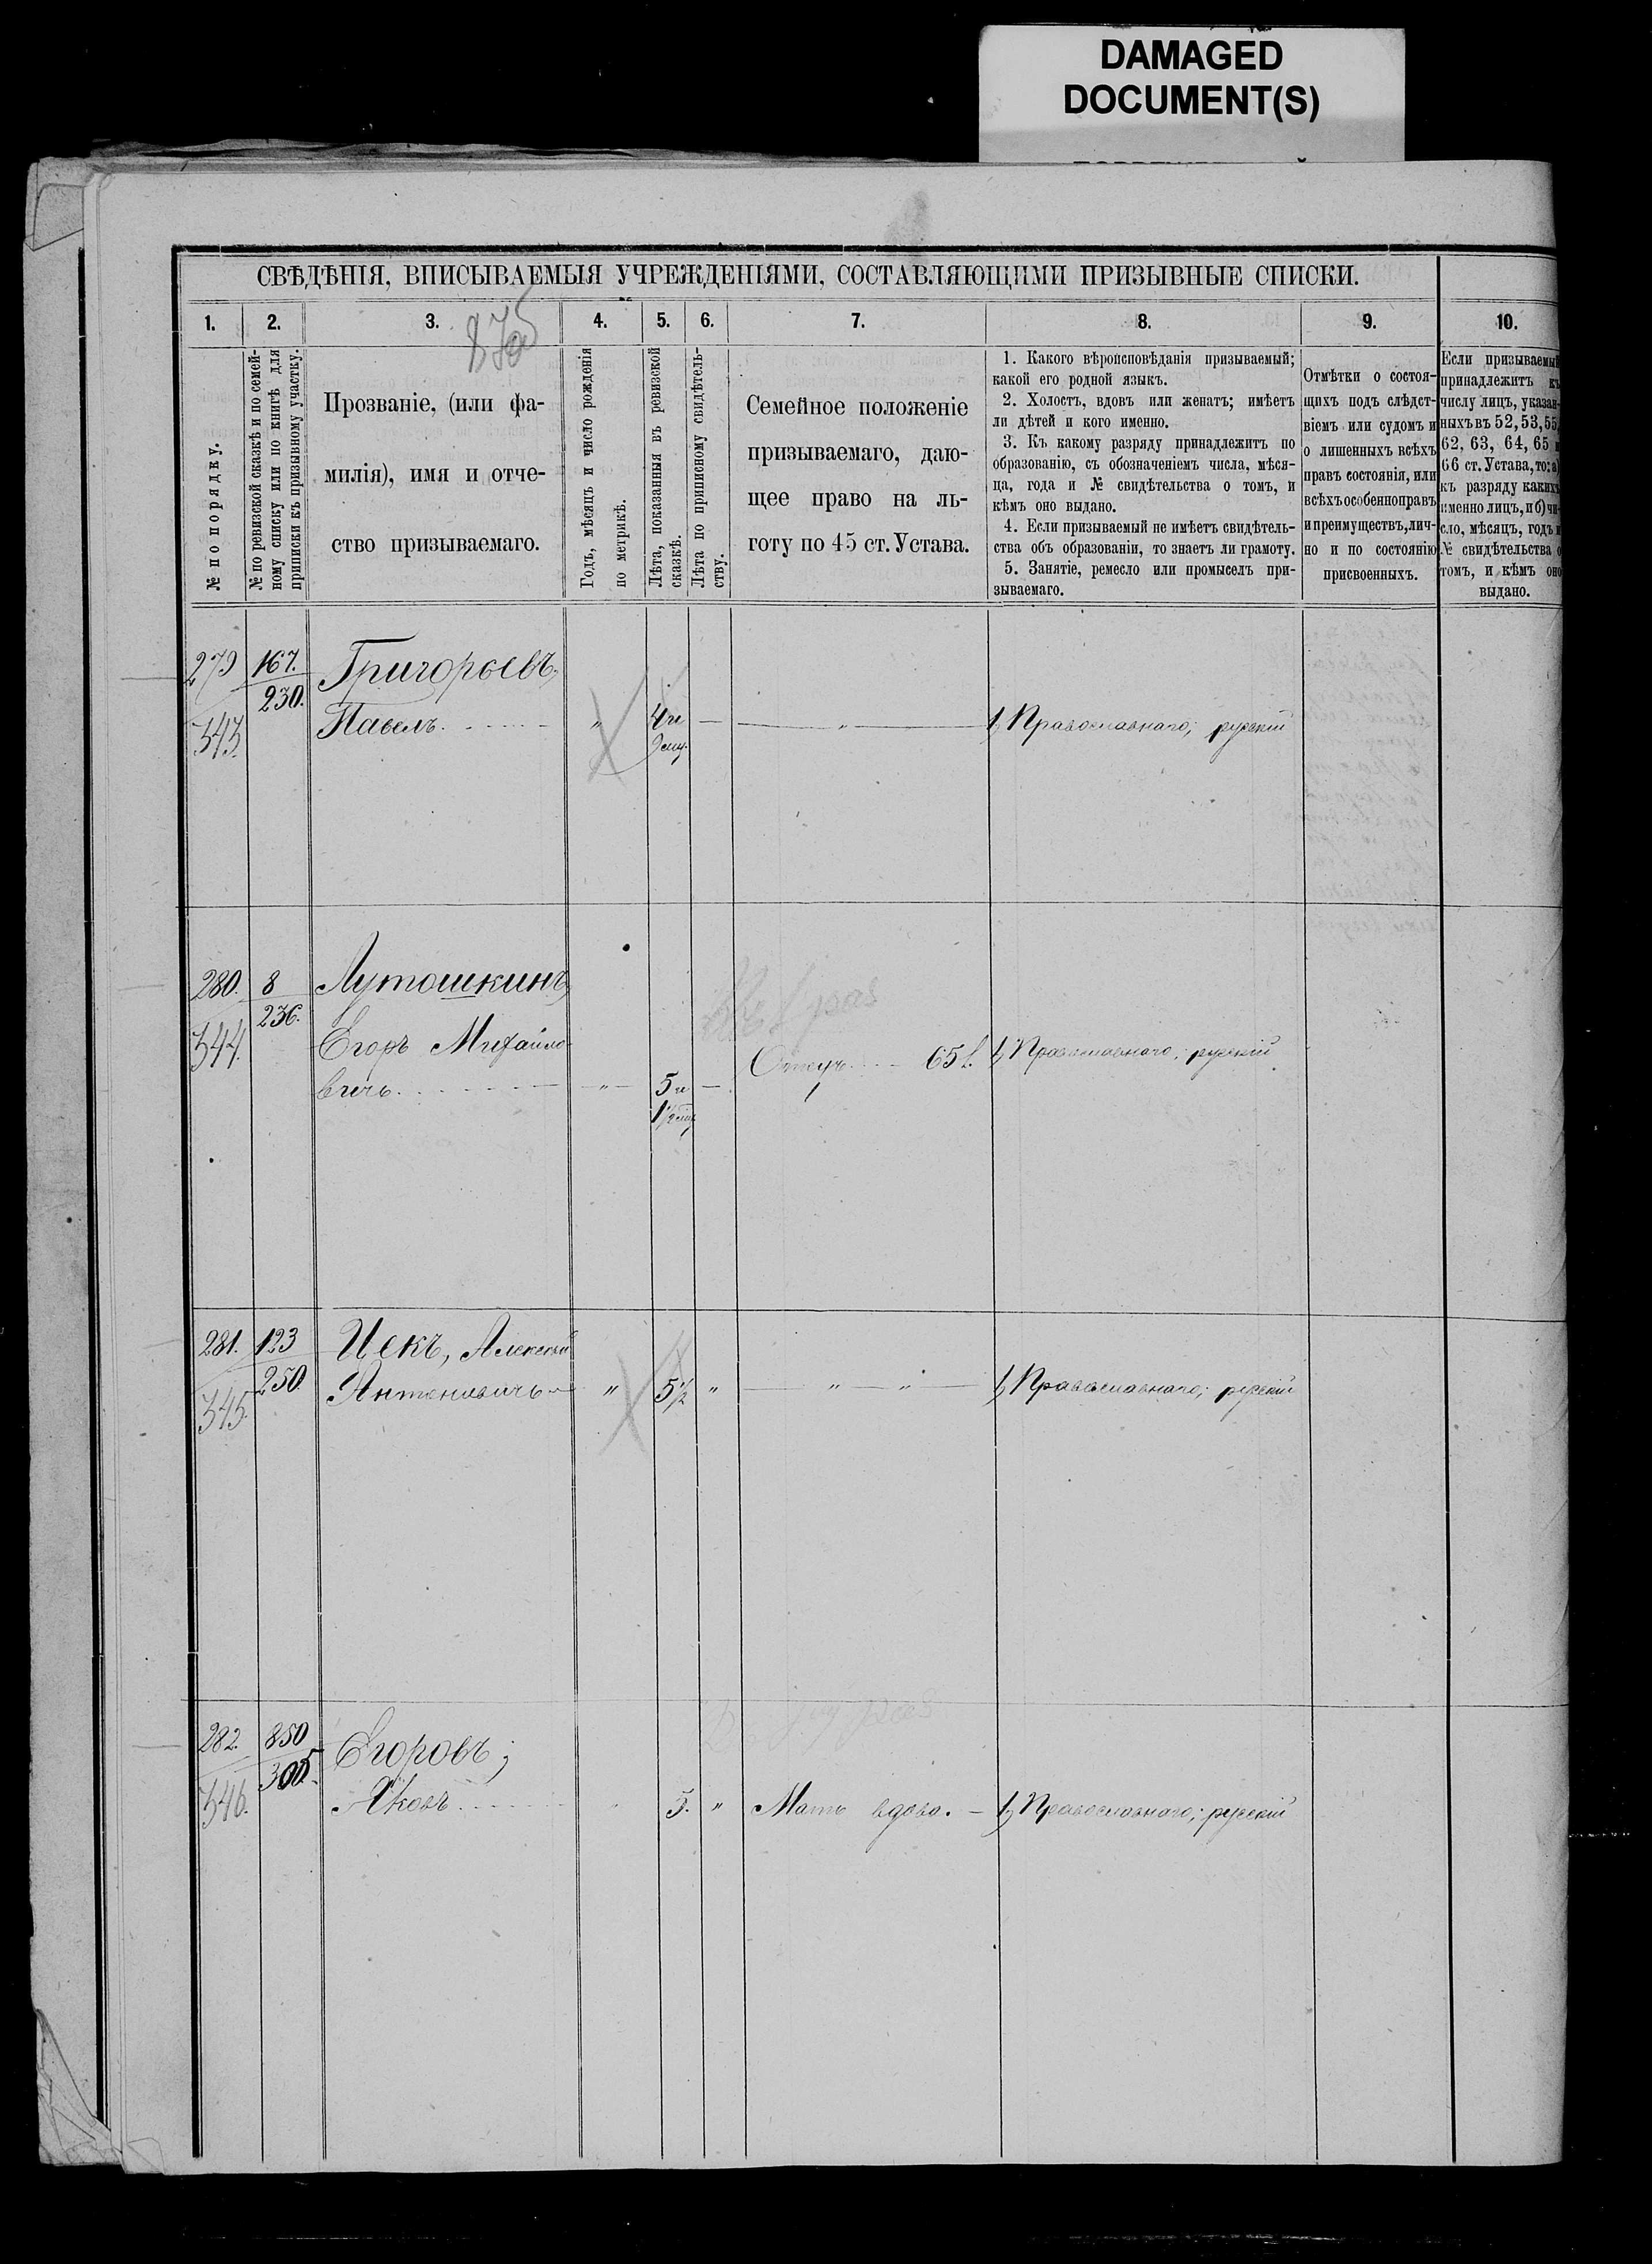 DAMAGED
DOCUMENT(S)
СВѢДѢНІЯ, ВПИСЫВАЕМЫЯ УЧРЕЖДЕНІЯМИ, СОСТАВЛЯЮЩИМИ ПРИЗЫВНЫЕ СПИСКИ.
1.
2.
3.
4.
5.
6.
7.
8.
9.
10.
№ по порядку.
№ по ревизской сказкѣ и по семей-
ному списку или по книгѣ для
приписки къ призывному участку.
Прозваніе, (или фа-
милія), имя и отче-
ство призываемаго.
Годъ, мѣсяцъ и число рожденія
по метрикѣ.
Лѣта, показанныя въ ревизской
сказкѣ.
Лѣта по приписному свидѣтель-
ству.
Семейное положеніе
призываемаго, даю-
щее право на ль-
готу по 45 ст. Устава.
1. Какого вѣроисповѣданія призываемый;
какой его родной языкъ.
2. Холостъ, вдовъ или женатъ; имѣетъ
ли дѣтей и кого именно.
3. Къ какому разряду принадлежитъ по
образованію, съ обозначеніемъ числа, мѣся-
ца, года и № свидѣтельства о томъ, и
кѣмъ оно выдано.
4. Если призываемый не имѣетъ свидѣтель-
ства объ образованіи, то знаетъ ли грамоту.
5. Занятіе, ремесло или промыселъ при-
зываемаго.
Отмѣтки о состоя-
щихъ подъ слѣдст-
віемъ или судомъ и
о лишенныхъ всѣхъ
правъ состоянія, или
всѣхъ особенно правъ
и преимуществъ, лич-
но и по состоянію
присвоенныхъ.
Если призываемый
принадлежитъ къ
числу лицъ, указан-
ныхъ въ 52, 53, 55,
62, 63, 64, 65 и
66 ст. Устава, то: а)
къ разряду какихъ
именно лицъ, и б) чи-
сло, мѣсяцъ, годъ и
№ свидѣтельства о
томъ, и кѣмъ оно
выдано.
279 167. Григорьевъ,
230.
343. Павелъ. " 4 и — " 1) Православнаго; русскій
9 мц.
280. 8 Лутошкинъ,
236.
344. Егоръ Михайло-
Отецъ 65 л. 1) Православнаго; русскій
вичъ. " 5 и —
1½ мц
281. 123 Цекъ, Алексѣй
250.
345. Антоновичъ " 5½ " " " 1) Православнаго; русскій
282. 850 Егоровъ;
305.
346. Яковъ 5. " Мать вдова. — 1) Православнаго; русскій